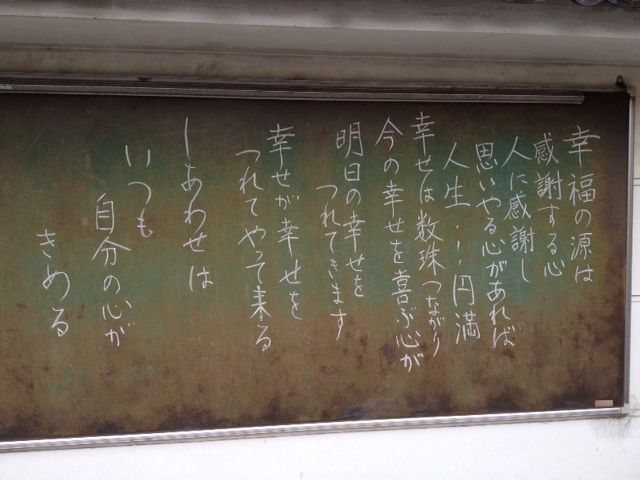 幸福の源は
感謝する心
人に感謝し
思いやる心があれば
人生・・円満
幸せは数珠つながり
今の幸せを喜ぶ心が
明日の幸せを
つれてきます
幸せが幸せを
つれてやって来る
しあわせは
いつも
自分の心が
きめる